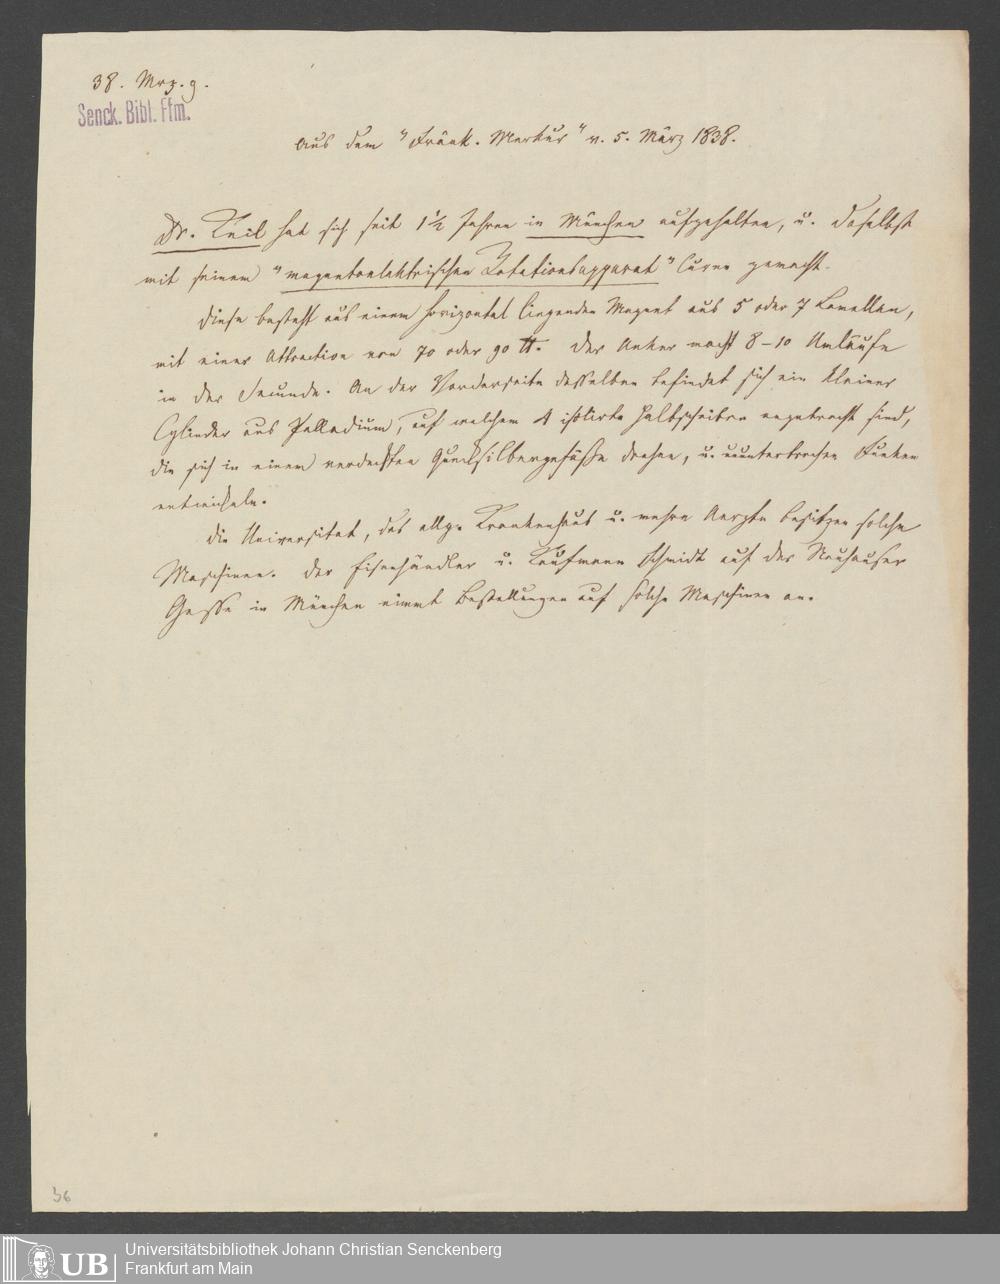 38. Mrz. 9.
Senck. Bibl. Ffm.
Aus dem "Fränk. Merkur" v. 5. März 1838.
Dr. Keil hat sich seit 1 1/2 Jahren in München aufgehalten, u. daselbst
mit seinem "magnetoelektrischen Rotationsapparat" Curen gemacht.
Diese besteht aus einem horizontal liegenden Magnet aus 5 oder 7 Lamellen,
mit einer Attraction von 70 oder 90 ℔. Der Anker macht 8-10 Umläufe
in der Secunde. An der Vorderseite desselben befindet sich ein kleiner
Cylinder aus Palladium, auf welchem 4 isolirte Halbscheiben angebracht sind,
die sich in einem verdeckten Quecksilbergefäße drehen, u. ununterbrochen Funken
entwickeln.
Die Universitat, das allg. Krankenhaus u. mehre Aerzte besitzen solche
Maschinen. Der Eisenhändler u. Kaufmann Schmidt auf der Neuhauser
Gasse in München nimmt Bestellungen auf solche Maschinen an.
36
UB
Universitätsbibliothek Johann Christian Senckenberg
Frankfurt am Main